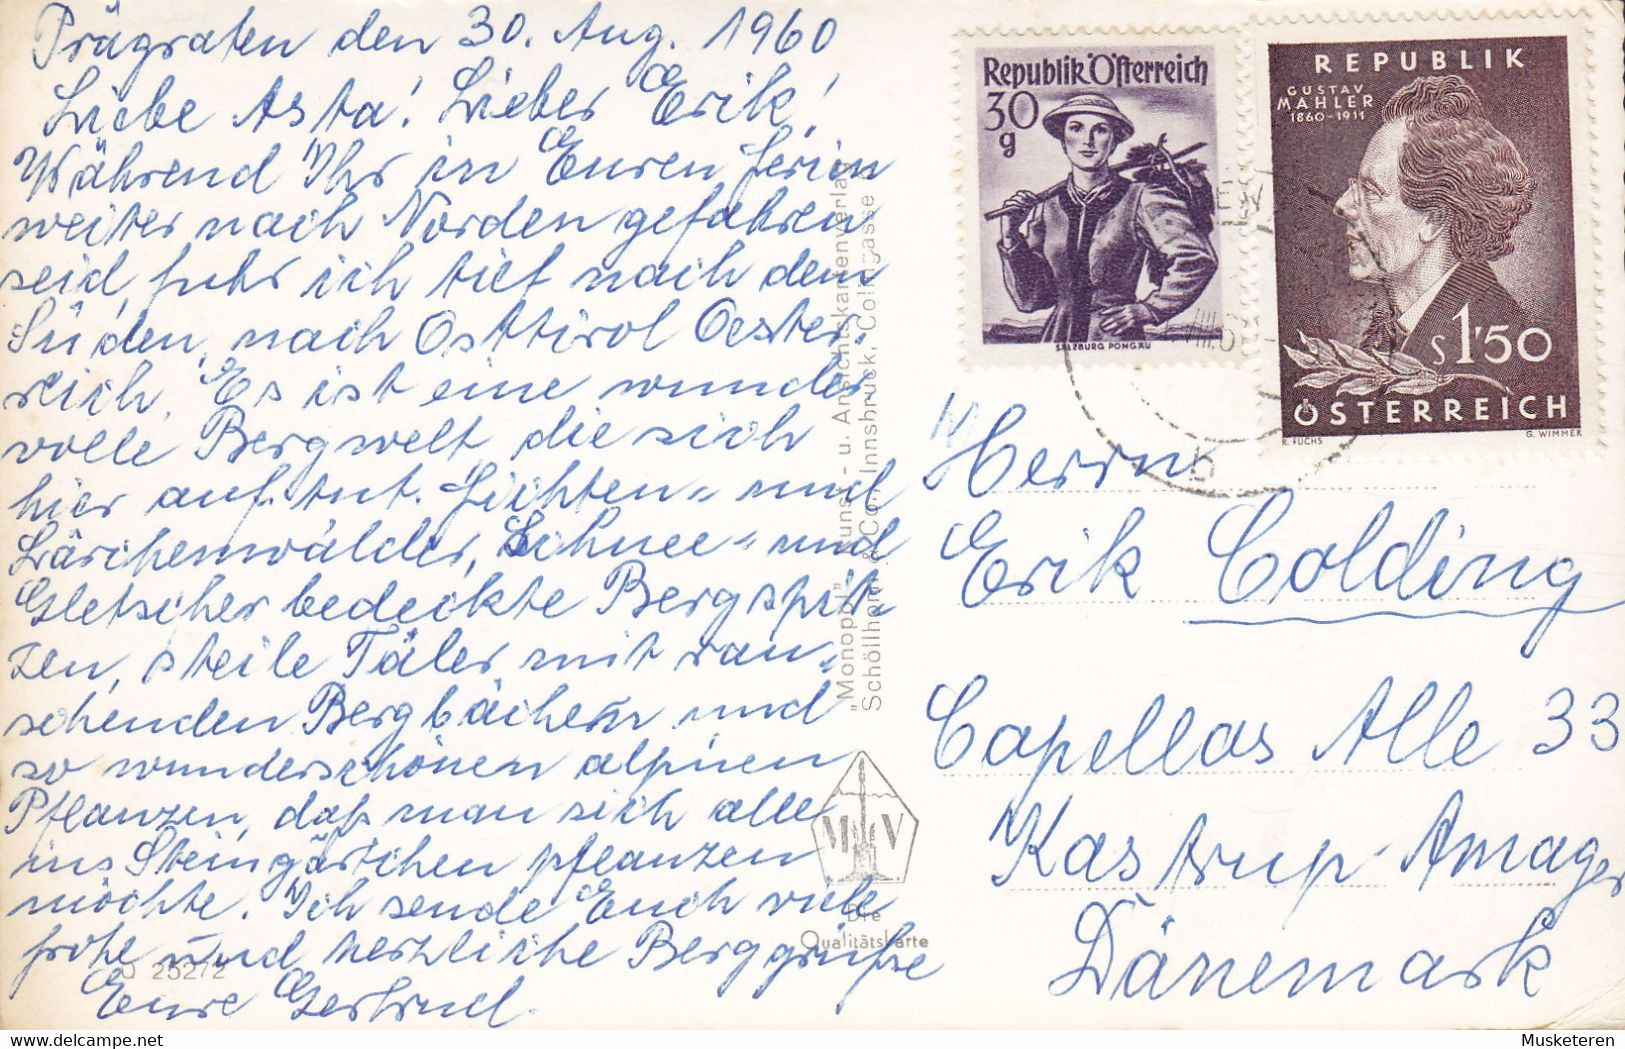 Prägraten den 30. Aug. 1960
Liebe Asta! Lieber Erik!
Während Ihr in Euren Ferien
weiter nach Norden gefahren
seid, fuhr ich tief nach dem
Süden, nach Osttirol Oester-
reich. Es ist eine wunder
volle Bergwelt die sich
hier auftut. Fichten- und
Lärchenwälder, Schnee- und
Gletscher bedeckte Bergspit
zen, steile Täler mit rau-
schenden Bergbächern und
so wunderschönen alpinen
Pflanzen, daß man sich alle
ins Steingärtchen pflanzen
möchte. Ich sende Euch viele
frohe und herzliche Berggrüße
Eure Gertrud.
25272
"Monopol" Kunst- u. Ansichtskartenverlag
Schöllhorn & Co., Innsbruck, Colingasse
M V
Die
Qualitätskarte
Republik Österreich
30
g
SALZBURG PONGAU
REPUBLIK
GUSTAV
MAHLER
1860-1911
S 1'50
ÖSTERREICH
R. FUCHS
G. WIMMER
VIII.6
b
Herrn
Erik Colding
Capellas Alle 33
Kastrup-Amager
Dänemark
Musketeren
delcampe.net